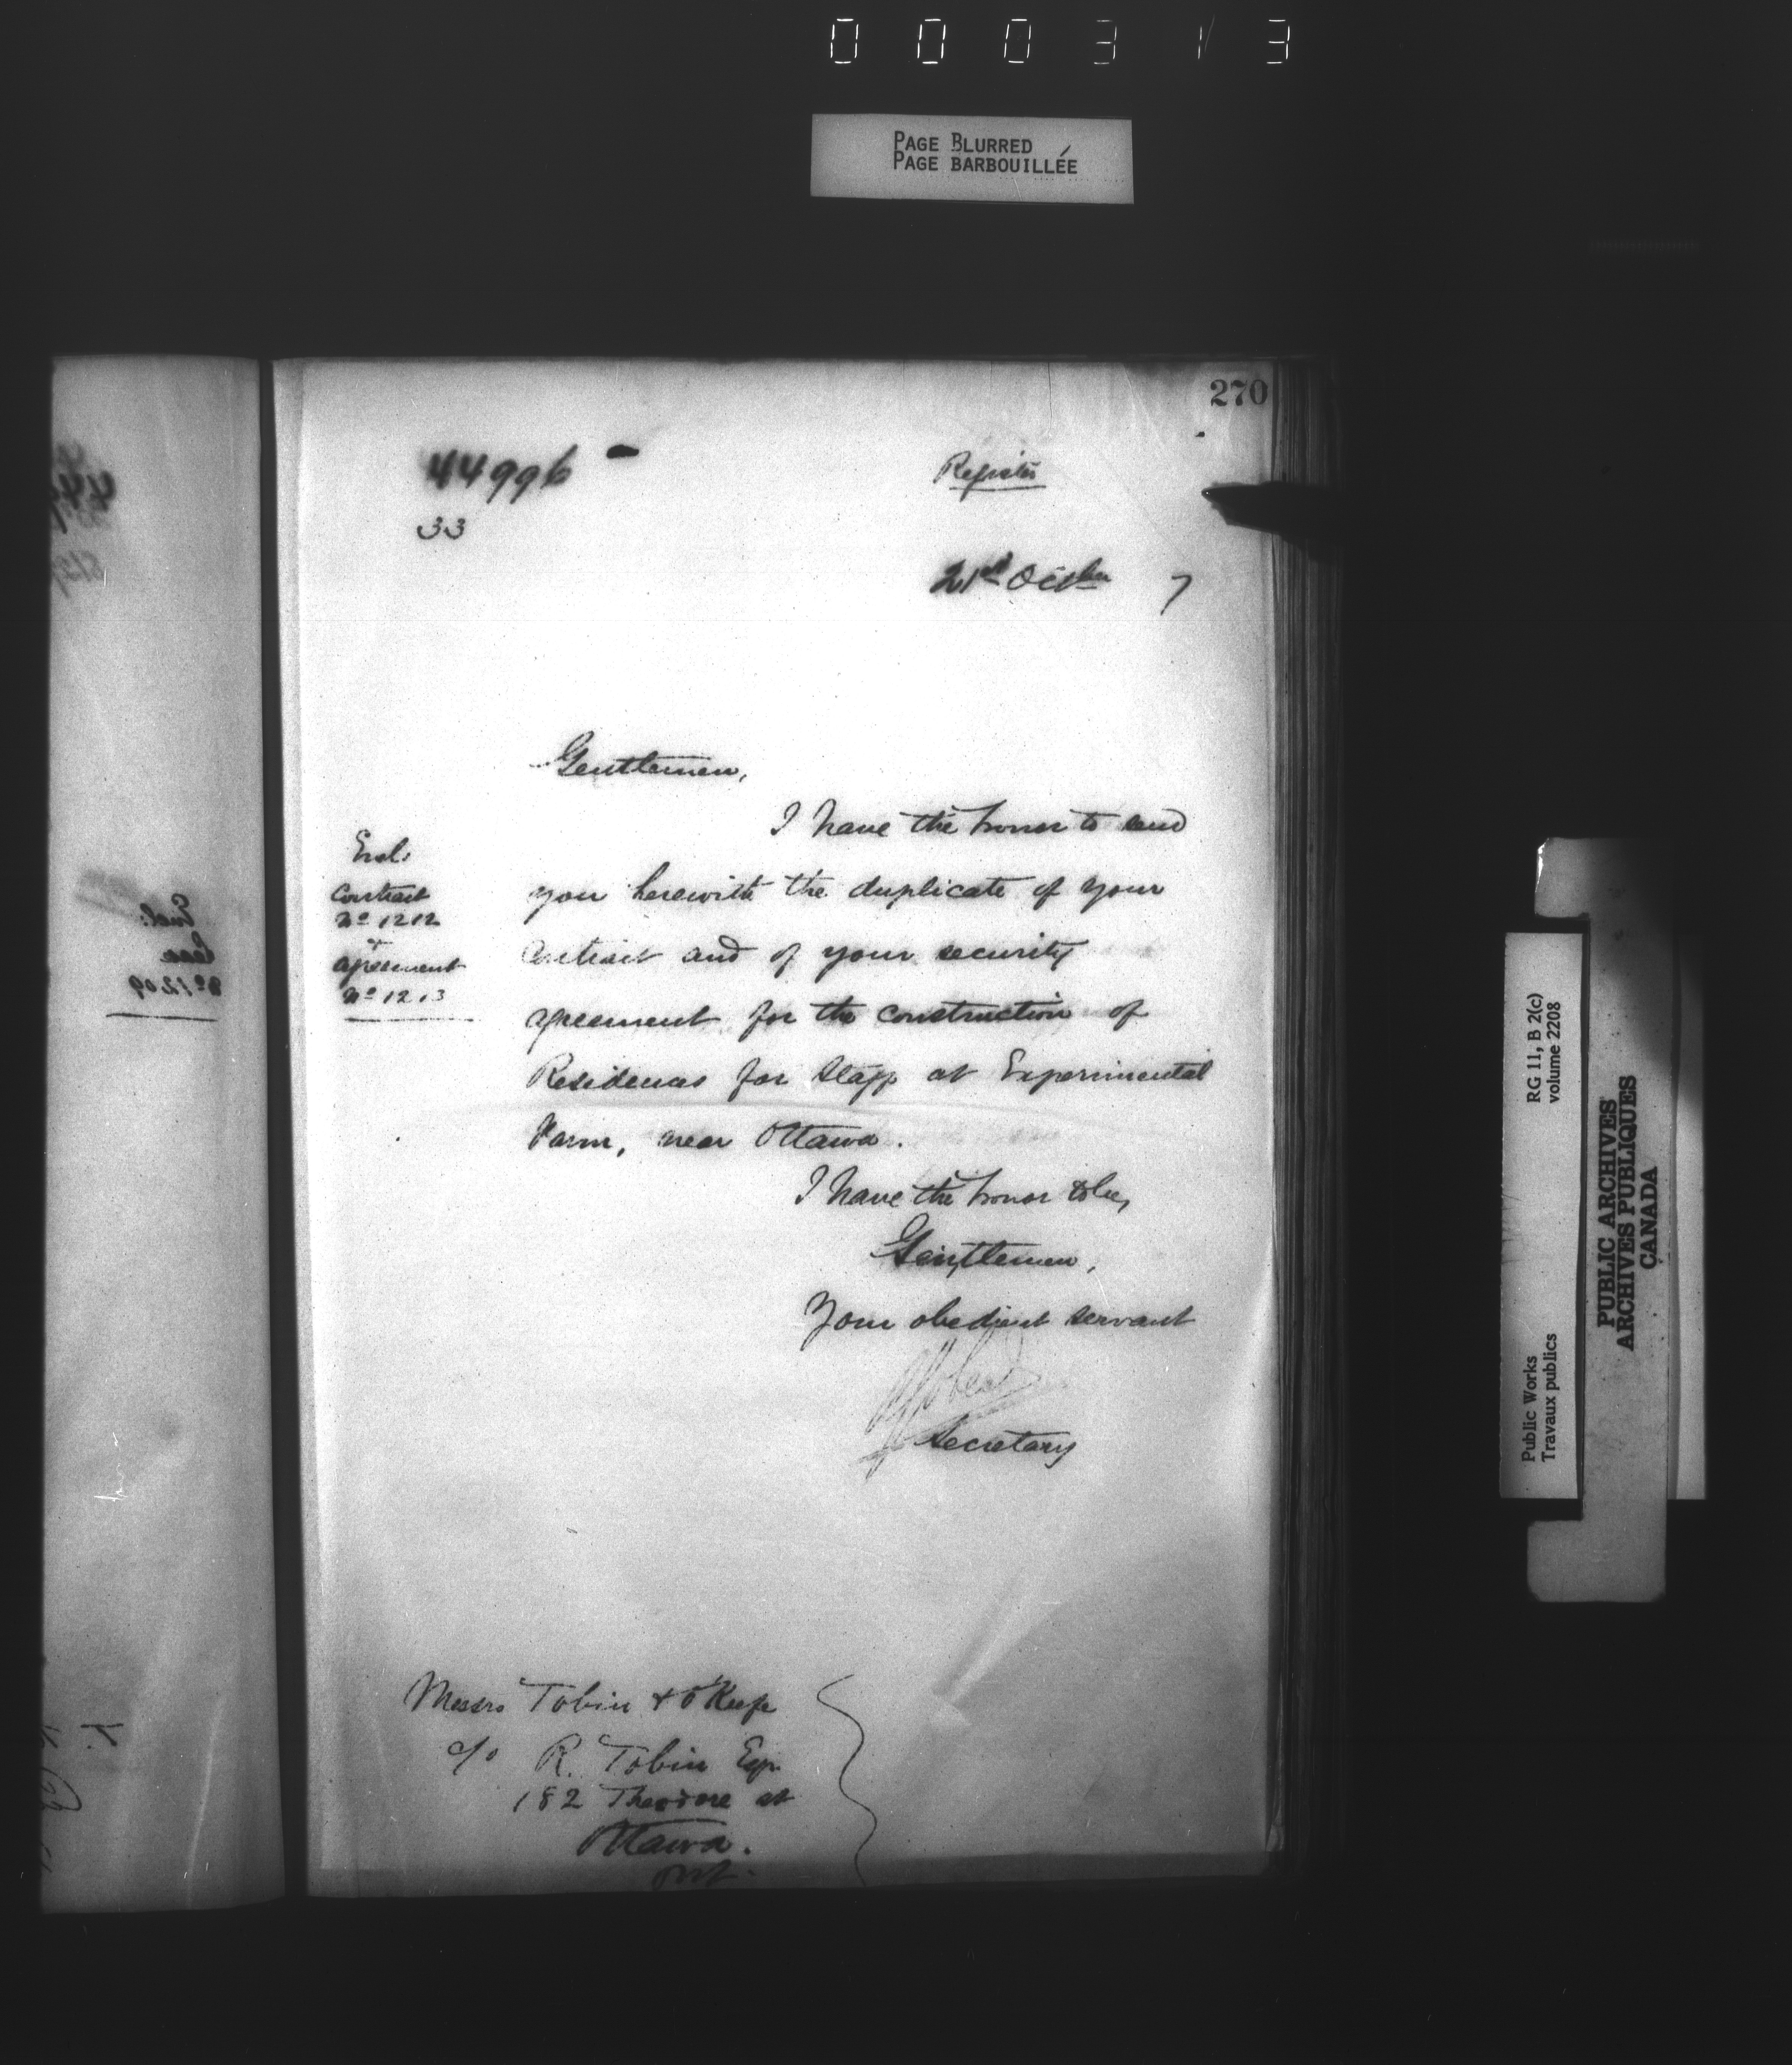 000313
PAGE BLURRED
PAGE BARBOUILLÉE
270
44996
33
Register
21st October 7
Gentlemen,
I have the honor to send
you herewith the duplicate of your
contract and of your security
agreement for the construction of
Residences for Staff at Experimental
Farm, near Ottawa.
Encl:
Contract
No 1212
+
agreement
No 1213
I have the honor to be,
Gentlemen,
Your obedient servant
Secretary
Messrs Tobin & O'Keefe
c/o R. Tobin Esqr
182 Theodore st
Ottawa.
Ont.
Encl:
No 1209
RG 11, B 2(c)
volume 2208
Public Works
Travaux publics
PUBLIC ARCHIVES
ARCHIVES PUBLIQUES
CANADA